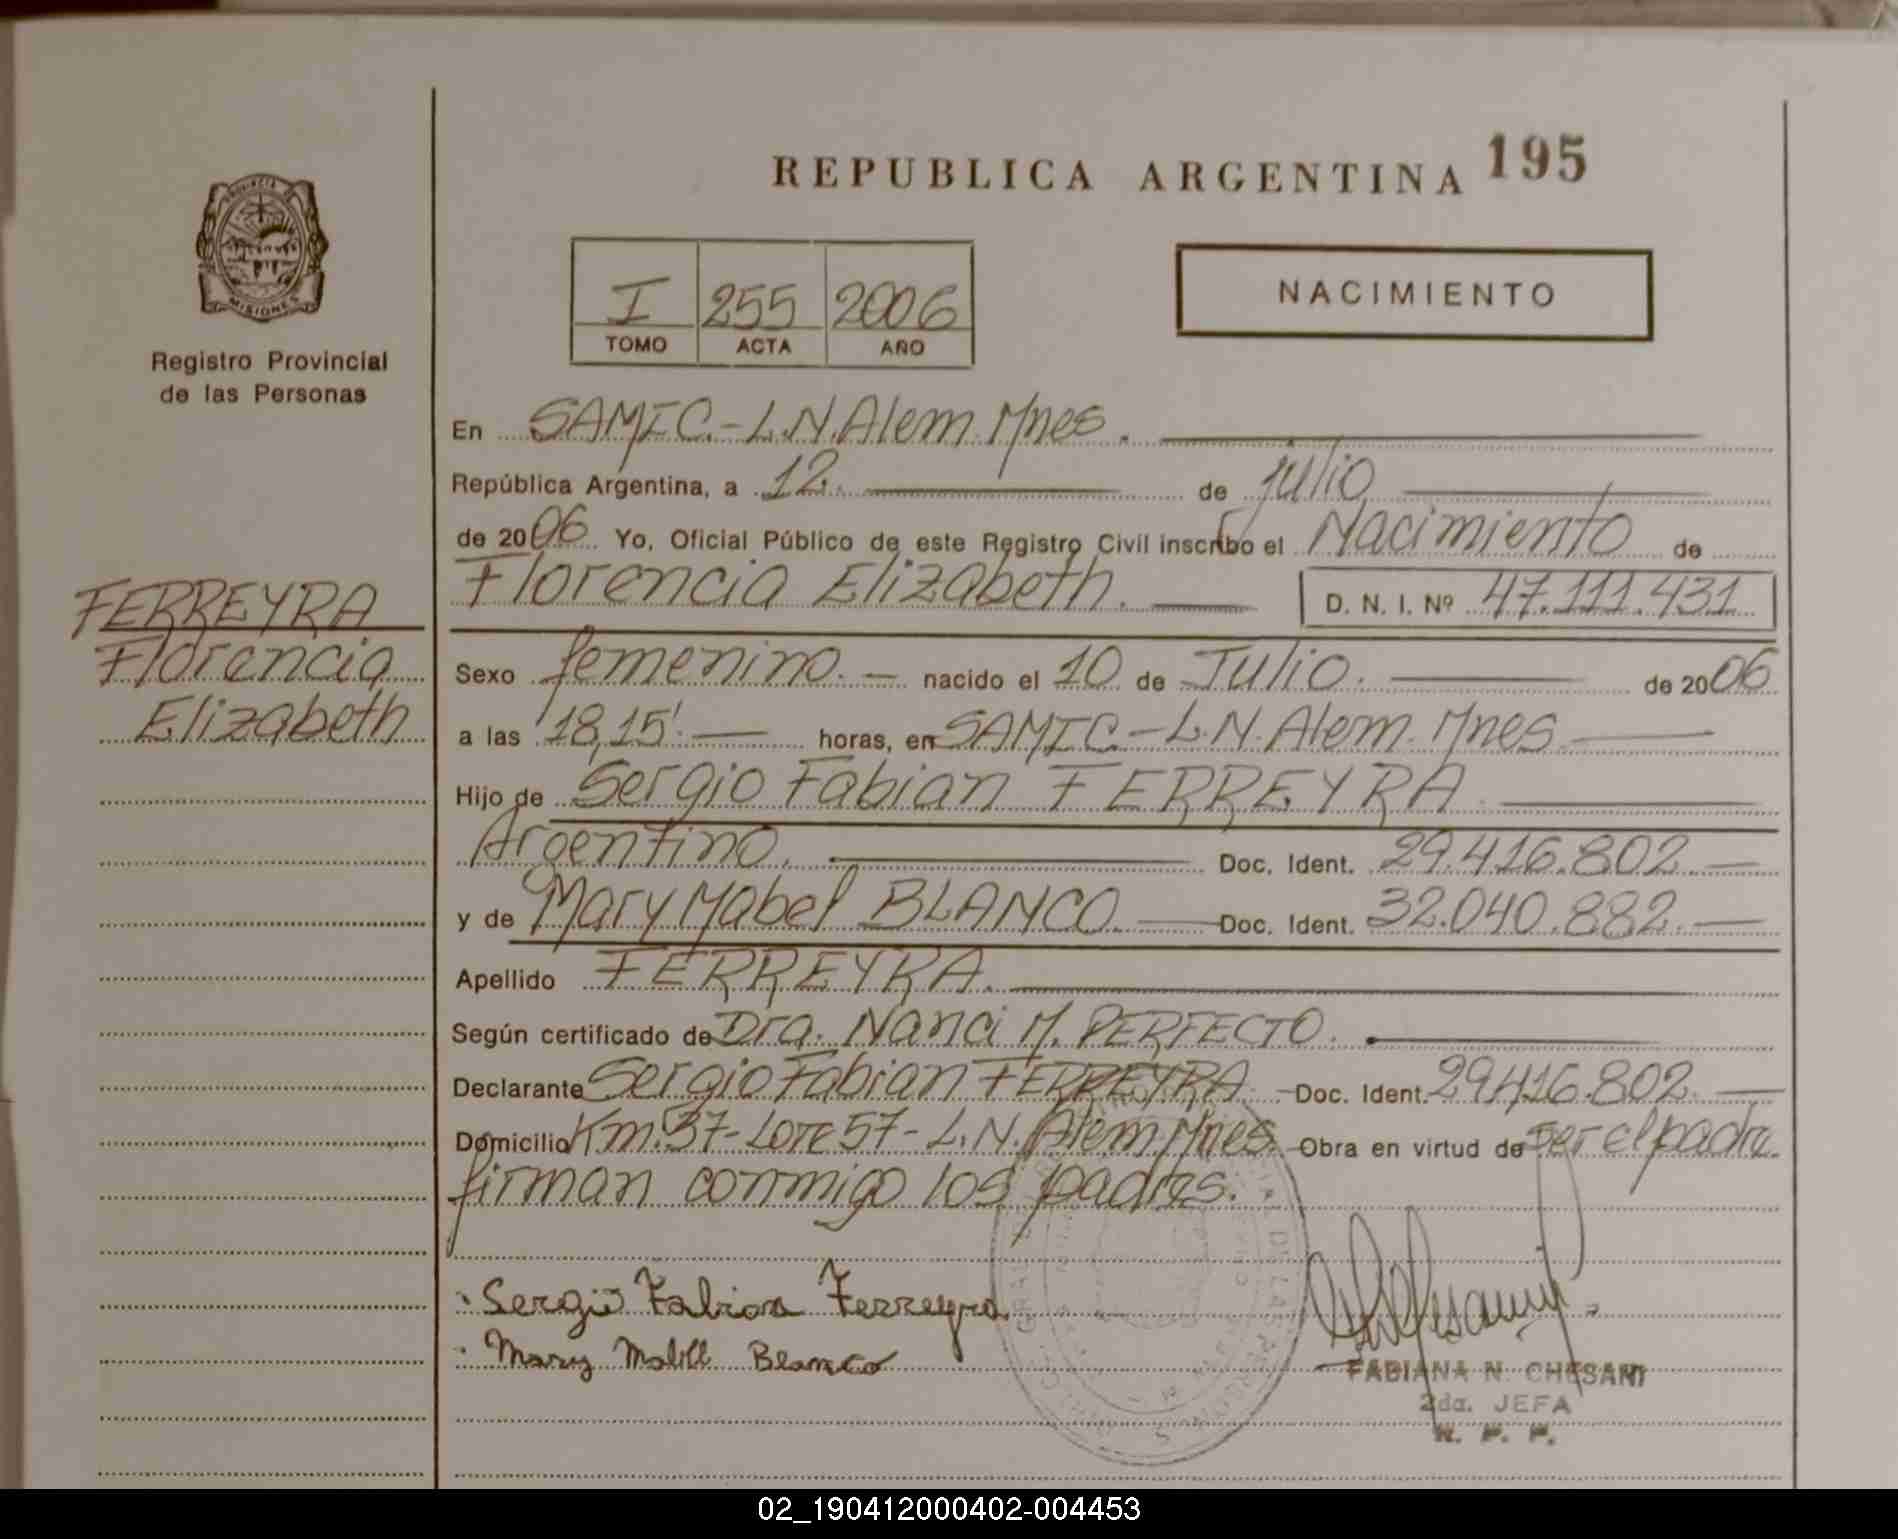 REPUBLICA ARGENTINA 195
PROVINCIA DE
MISIONES
Registro Provincial
de las Personas
I 255 2006
TOMO ACTA AÑO
NACIMIENTO
En SAMIC.-L.N.Alem.Mnes.
República Argentina, a 12. de julio
de 2006 Yo, Oficial Público de este Registro Civil inscribo el Nacimiento de
Florencia Elizabeth. D. N. I. Nº 47.111.431
FERREYRA
Florencia
Elizabeth
Sexo femenino. nacido el 10 de Julio. de 2006
a las 18,15' horas, en SAMIC.-L.N.Alem.Mnes
Hijo de Sergio Fabian FERREYRA
Argentino. Doc. Ident. 29.416.802.
y de Mary Mabel BLANCO. Doc. Ident. 32.040.882.
Apellido FERREYRA.
Según certificado de Dra. Nanci M. PERFECTO.
Declarante Sergio Fabian FERREYRA. Doc. Ident. 29.416.802.
Domicilio Km.37-Lote 57-L.N.Alem.Mnes. Obra en virtud de ser el padre.
firman conmigo los padres.
Sergio Fabian Ferreyra
Mary Mabel Blanco
FABIANA N. CHESANI
2da. JEFA
R. P. P.
02_190412000402-004453